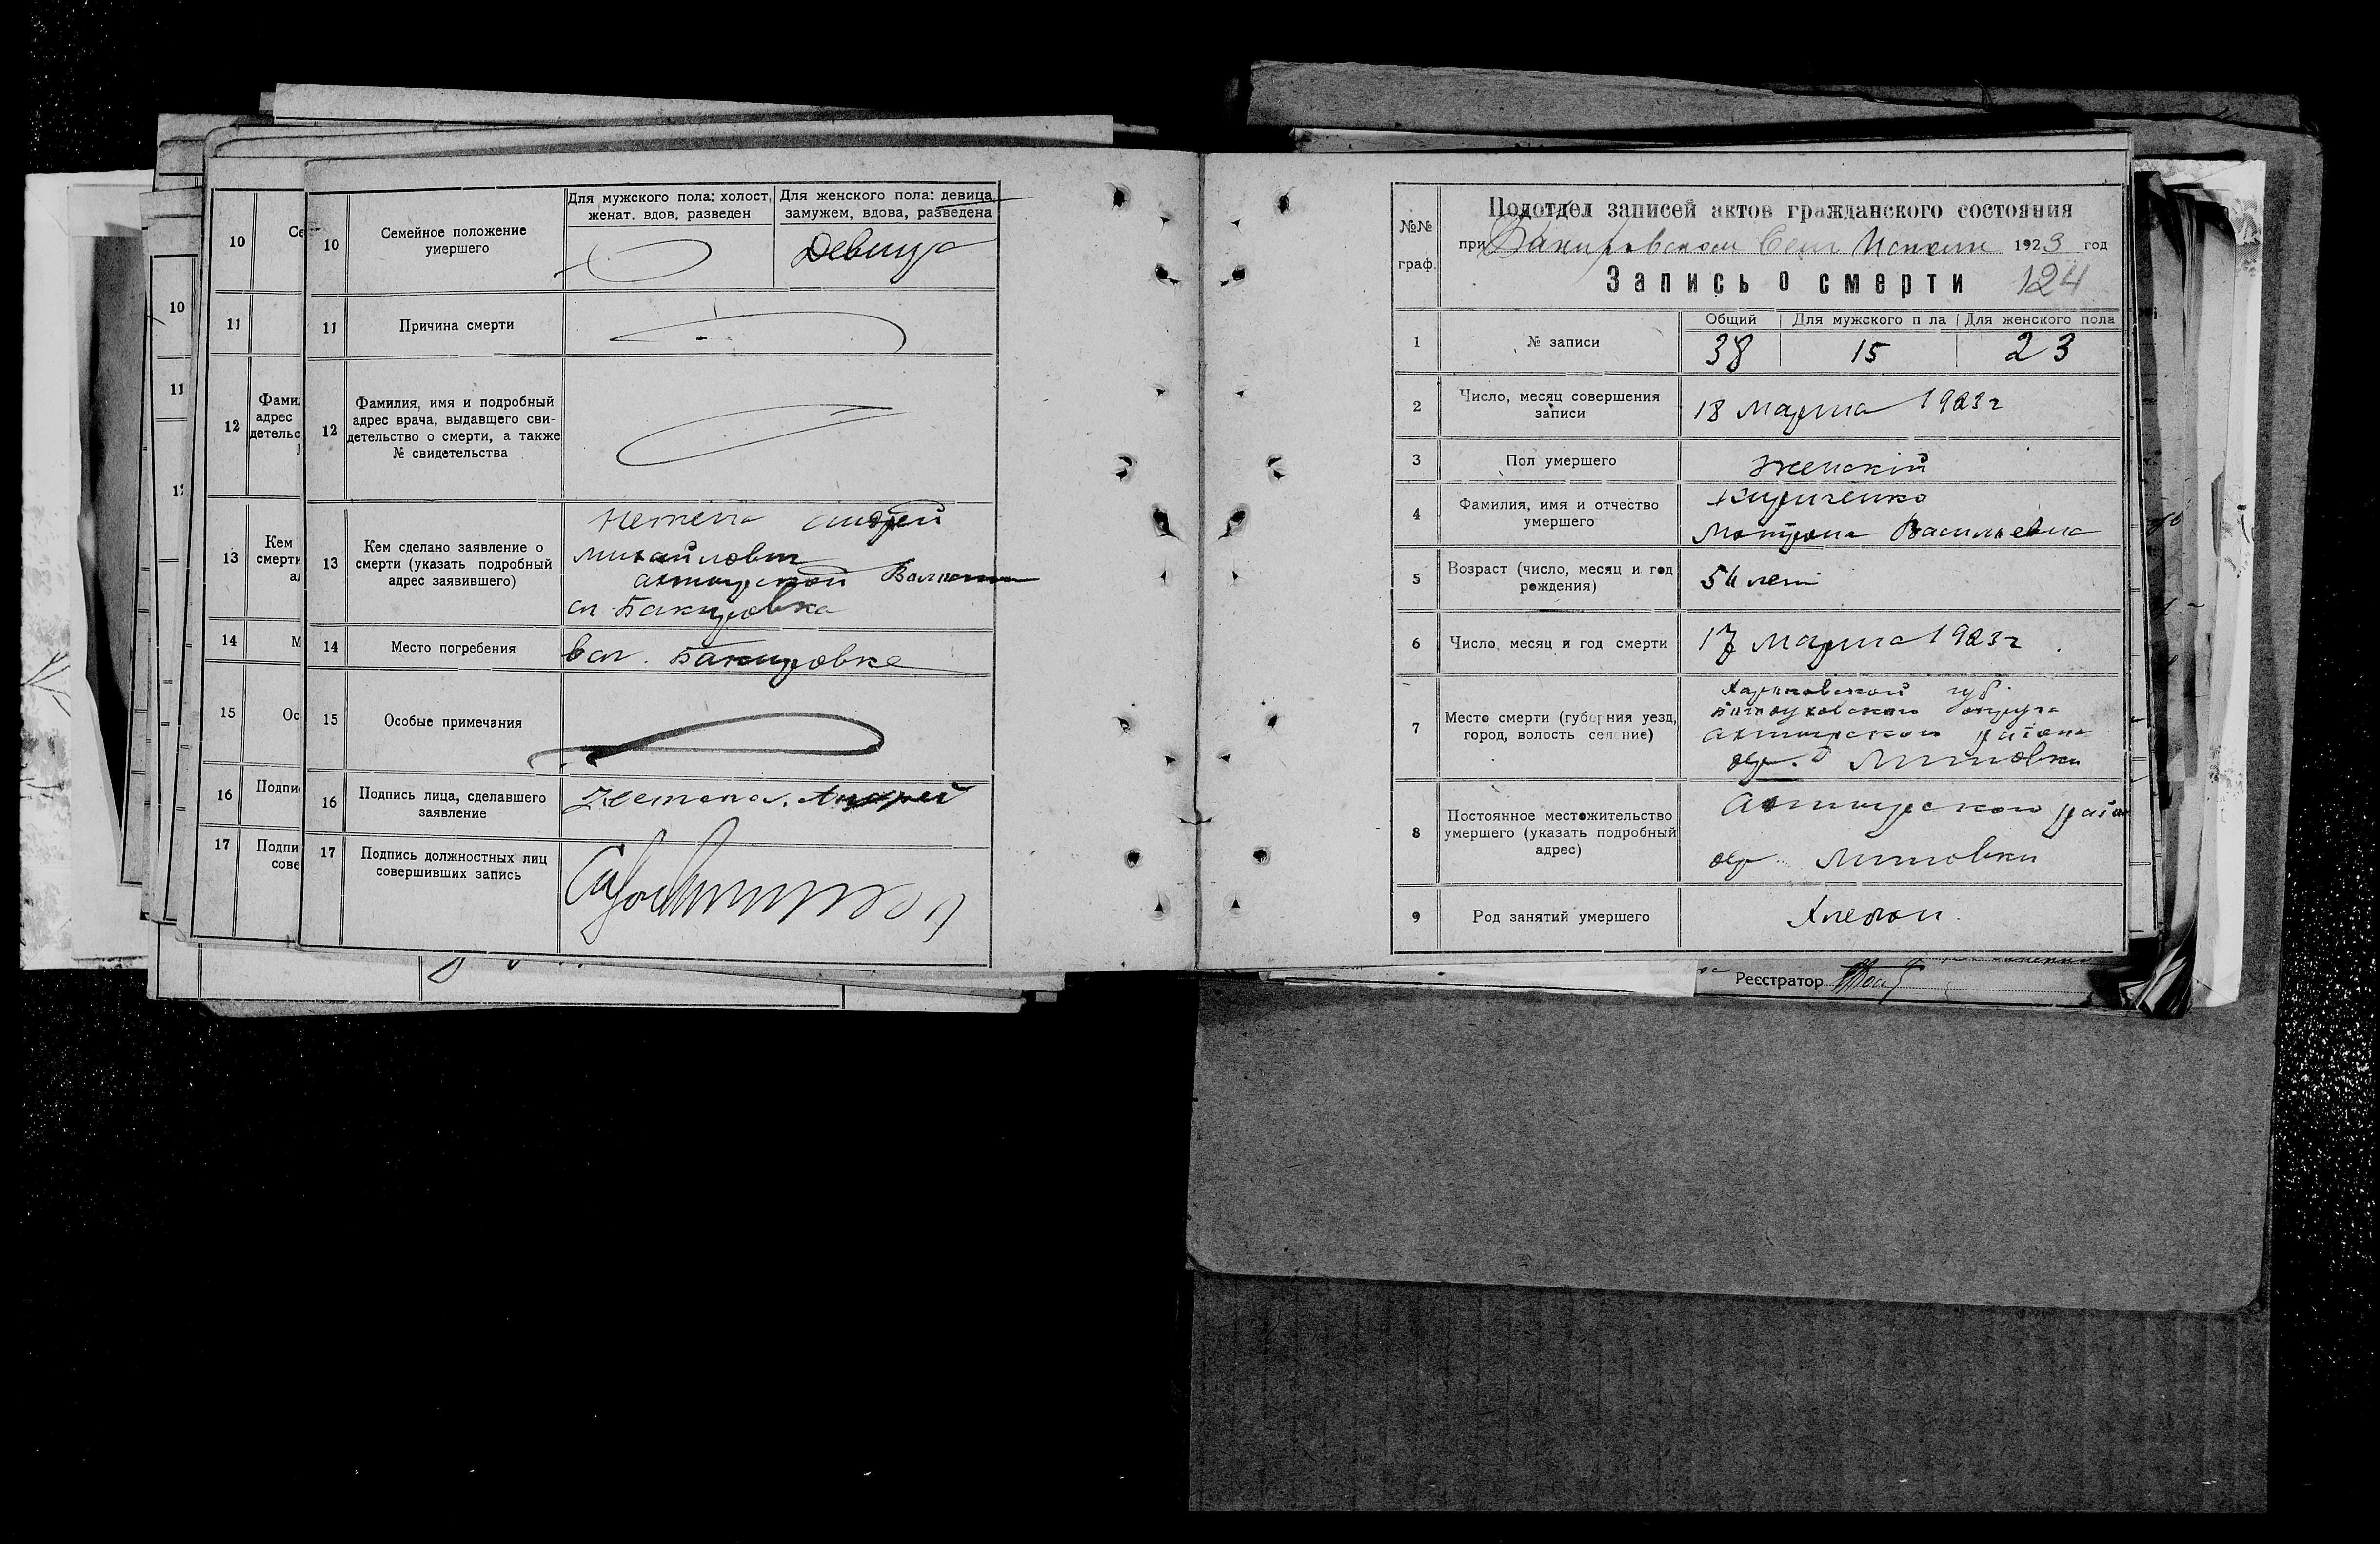 10
11
12
13
14
15
16
17
10
Семейное положение
умершего
Для мужского пола: холост,
женат. вдов, разведен
Для женского пола: девица,
замужем, вдова, разведена
Девица
11
Причина смерти
12
Фамилия, имя и подробный
адрес врача, выдавшего сви-
детельство о смерти, а также
№ свидетельства
13
Кем сделано заявление о
смерти (указать подробный
адрес заявившего)
Андрей
Михайлович
Ахтырской
сл Бакировка
14
Место погребения
в сл. Бакировке
15
Особые примечания
16
Подпись лица, сделавшего
заявление
Андрей
17
Подпись должностных лиц
совершивших запись
№№
граф.
Подотдел записей актов гражданского состояния
при Бакировском Сель Исполк 1923 год
Запись о смерти 124
1
№ записи
Общий Для мужского п ла Для женского пола
38 15 23
2
Число, месяц совершения
записи
18 марта 1923 г
3
Пол умершего
женский
4
Фамилия, имя и отчество
умершего
Кириченко
Мотрона Васильевна
5
Возраст (число, месяц и год
рождения)
54 лет
6
Число, месяц и год смерти
17 марта 1923 г
7
Место смерти (губерния уезд,
город, волость селение)
Харьковской губ.
Богодуховского округа
Ахтырского района
дер. Литовки
8
Постоянное местожительство
умершего (указать подробный
адрес)
Ахтырского район
дер Литовки
9
Род занятий умершего
Хлебоп.
Реєстратор